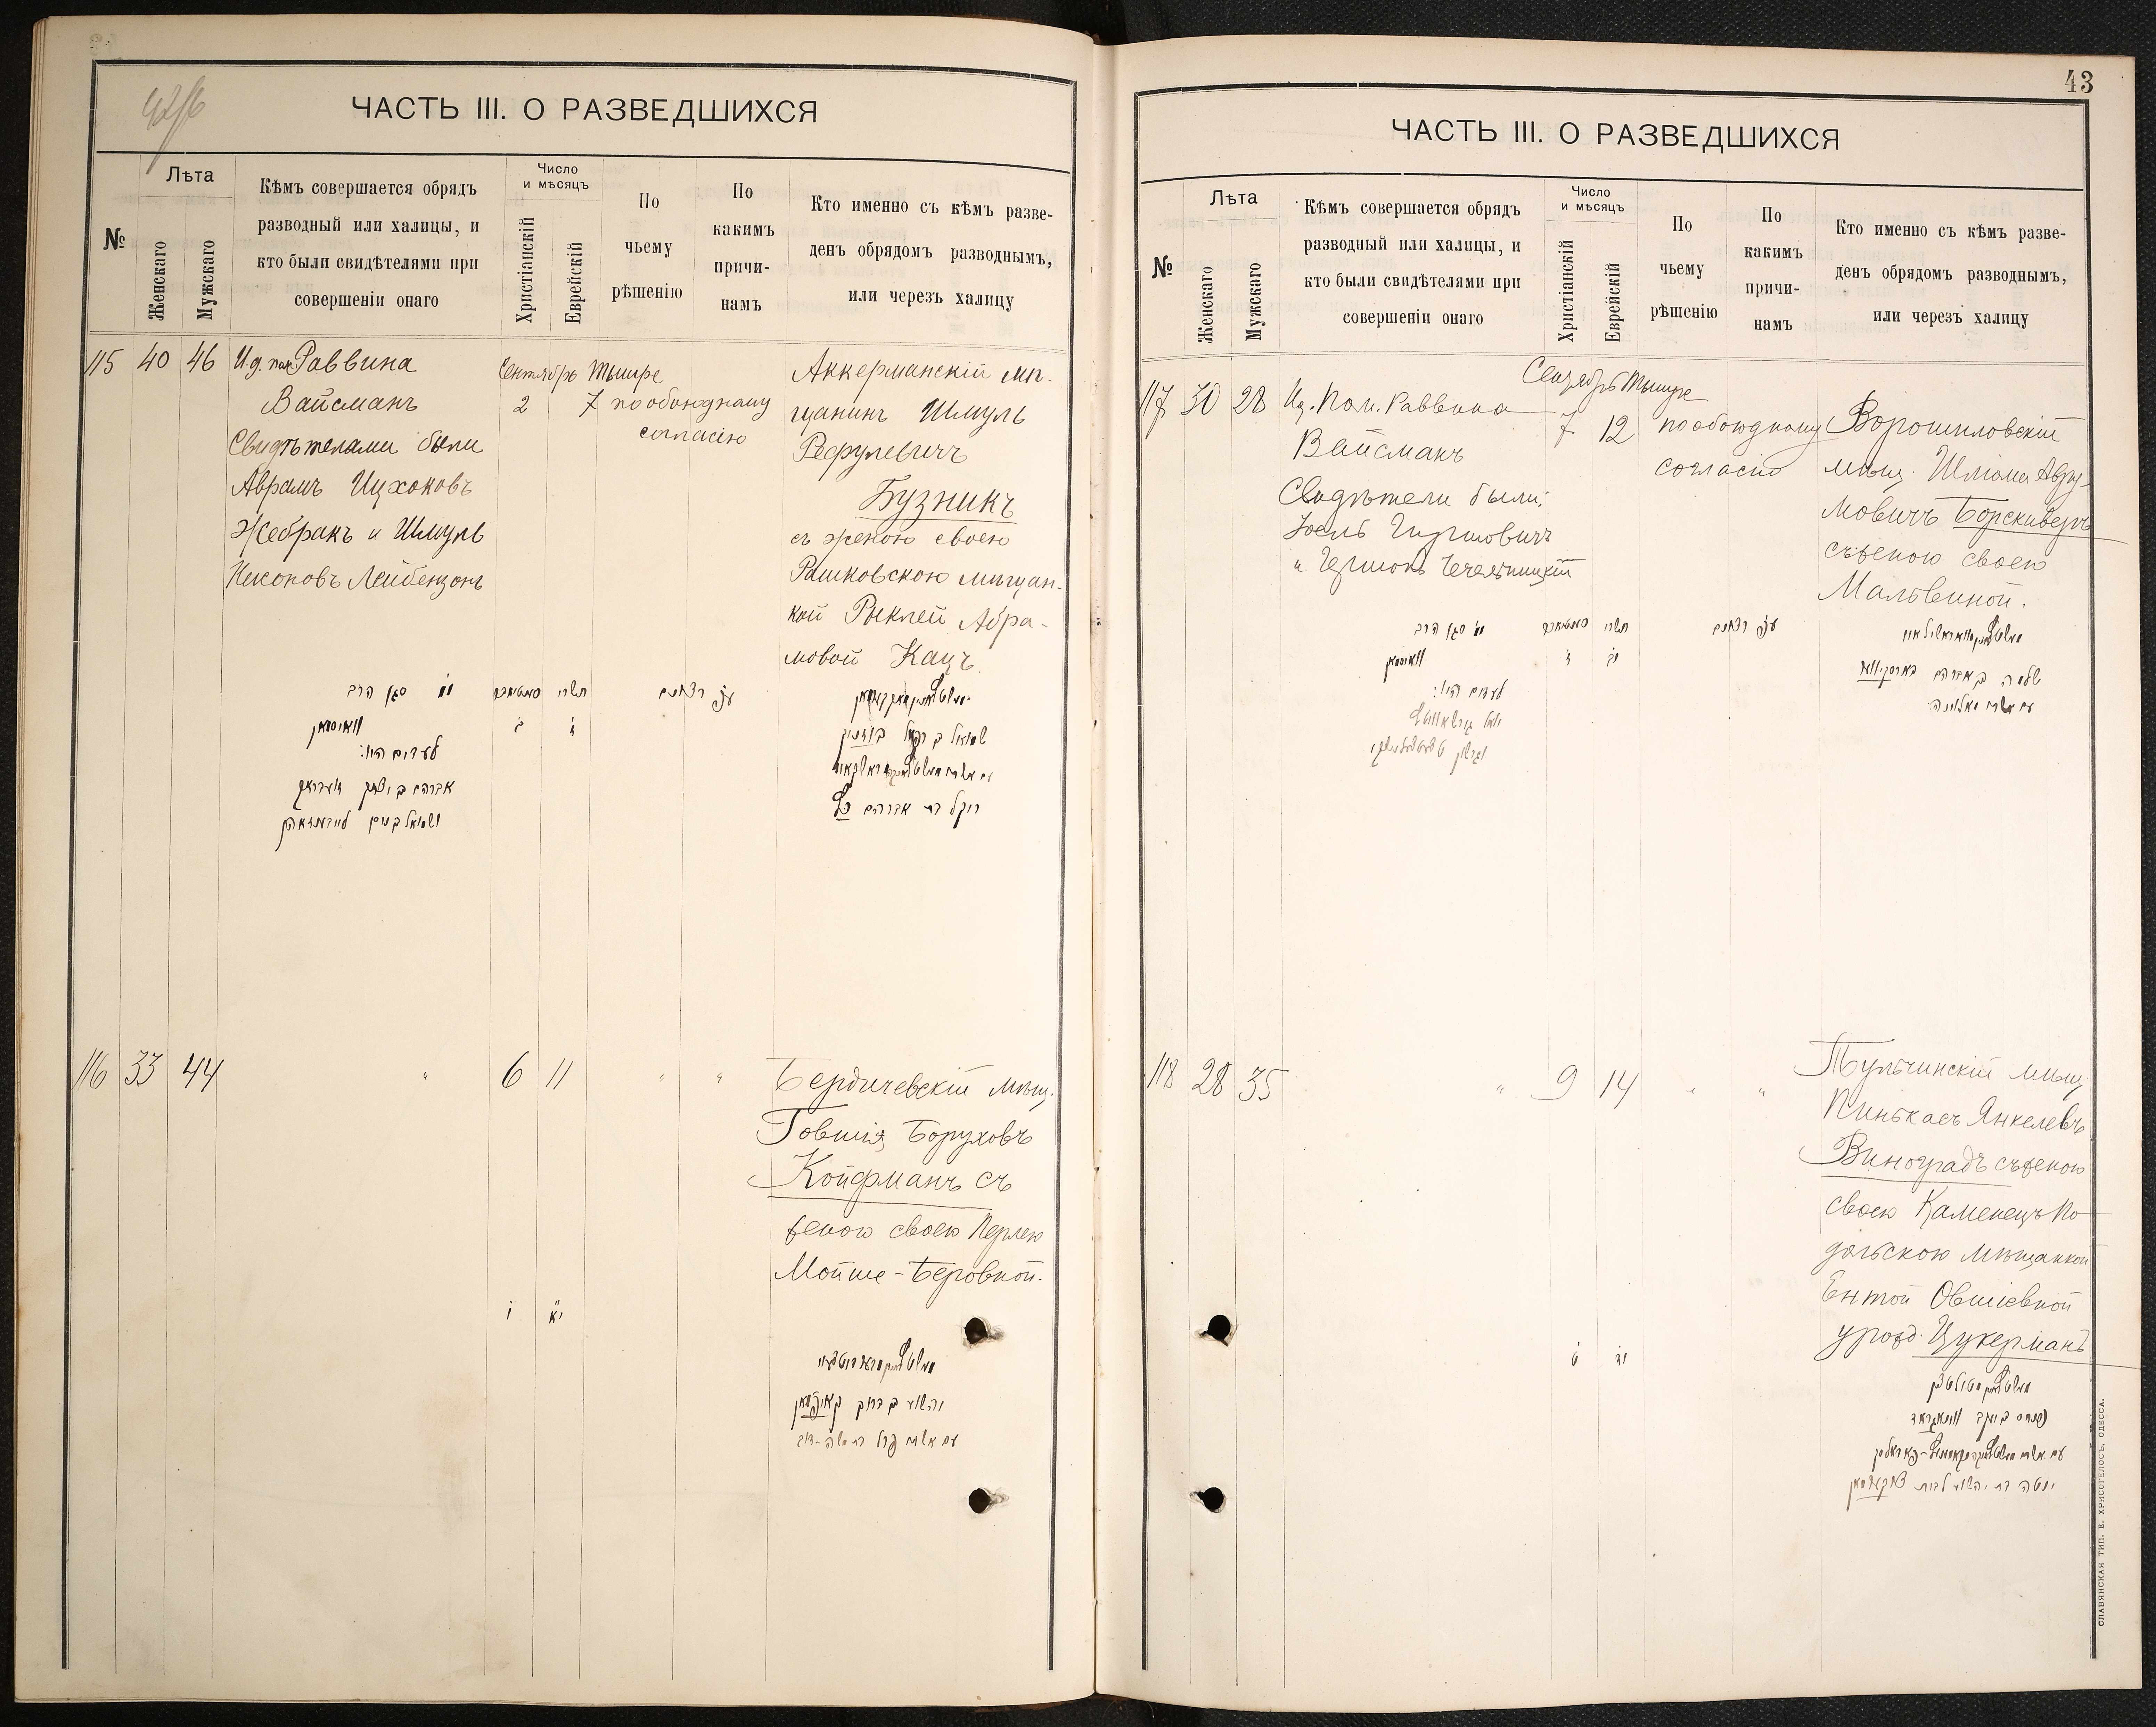 42/б
ЧАСТЬ III. О РАЗВЕДШИХСЯ
№
Лѣта
Женскаго
Мужскаго
Кѣмъ совершается обрядъ
разводный или халицы, и
кто были свидѣтелями при
совершеніи онаго
Число
и мѣсяцъ
Христіанскій
Еврейскій
По
чьему
рѣшенію
По
какимъ
причи-
намъ
Кто именно съ кѣмъ разве-
денъ обрядомъ разводнымъ,
или черезъ халицу
115 40 46
И.д. пом. Раввина
Вайсманъ
Свидѣтелами были
Аврамъ Ицхоковъ
Жебракъ и Шмуль
Лейбензонъ
Сентябрь Тышре
2 7
по обоюдному
согласію
Аккерманскій мѣ-
щанинъ Шмуль
Рефулевичъ
Бузникъ
съ женою своею
Рашковскою мѣщан-
кой Рыклей Абра-
мовой Кацъ
סגן הרב
תשרי
ווײסמאן
לעדים היו:
אברהם ב יצחק
שמואל ב רפאל בוזניק
רוקל בת אברהם כץ
116 33 44 " 6 11 " "
Бердичевскій мѣщ.
Говшія Боруховъ
Койфманъ съ
женою своею Перлею
Мойше-Беровной.
ו יא
יהושע ב ברוך קויפמאן
עם אשתו פרל בת משה-דוב
43
ЧАСТЬ III. О РАЗВЕДШИХСЯ
№
Лѣта
Женскаго
Мужскаго
Кѣмъ совершается обрядъ
разводный или халицы, и
кто были свидѣтелями при
совершеніи онаго
Число
и мѣсяцъ
Христіанскій
Еврейскій
По
чьему
рѣшенію
По
какимъ
причи-
намъ
Кто именно съ кѣмъ разве-
денъ обрядомъ разводнымъ,
или черезъ халицу
117 30 28
Ид. Пом. Раввина
Вайсманъ
Свидѣтели были:
Іосль Гиршовичъ
и Гершонъ Чечельницкій
Сентябрь Тышре
7 12
по обоюдному
согласію
Ворошиловскій
мѣщ. Шлома Авру-
мовичъ Борскиверъ
съ женою своею
Мальвиной.
סגן הרב
תשרי
ז יב
לעדים היו:
עם אשתו מאלווינה
118 28 35 " 9 14 " "
Тульчинскій мѣщ.
Пинькасъ Янкелевъ
Виноградъ съ женою
своею Каменецъ По-
дольскою мѣщанкой
Ентой Овшіевной
урожд. Цукерманъ
ט יד
פנחס ב יעקב וויינאגראד
יענטה בת יהושע לבית צוקערמאן
СЛАВЯНСКАЯ ТИП. Е. ХРИСОГЕЛОСЪ, ОДЕССА.